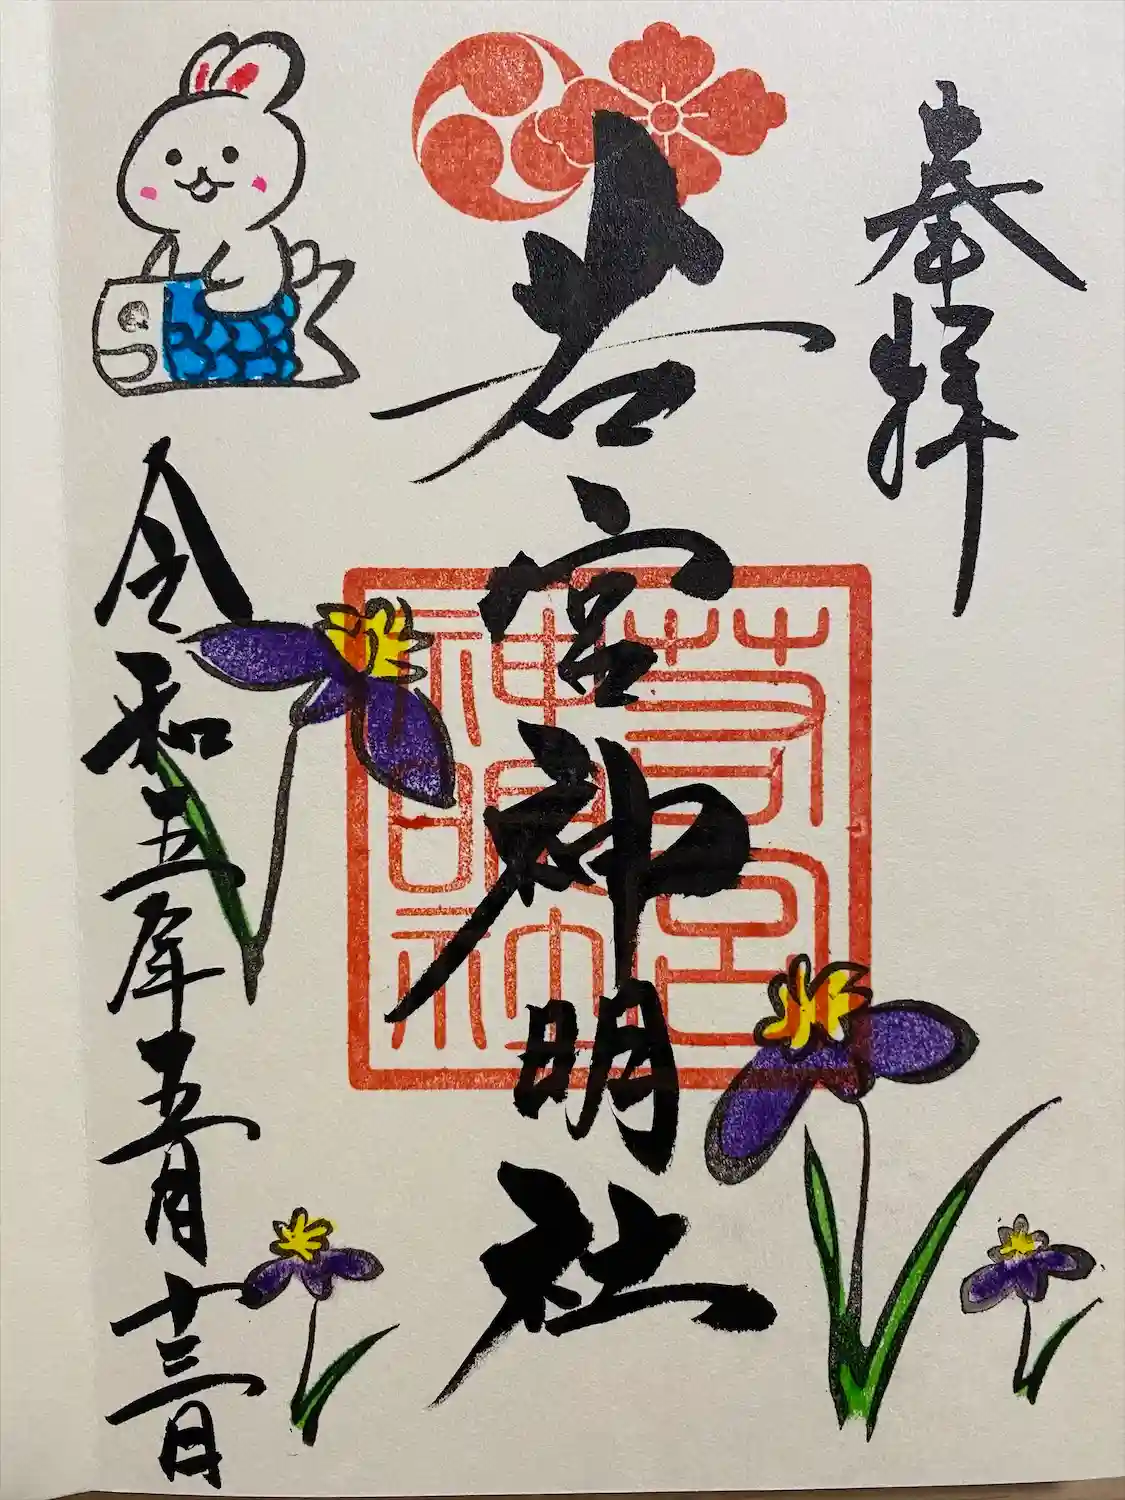 奉拝
若宮神明社
若宮
神明社
令和五年五月十三日